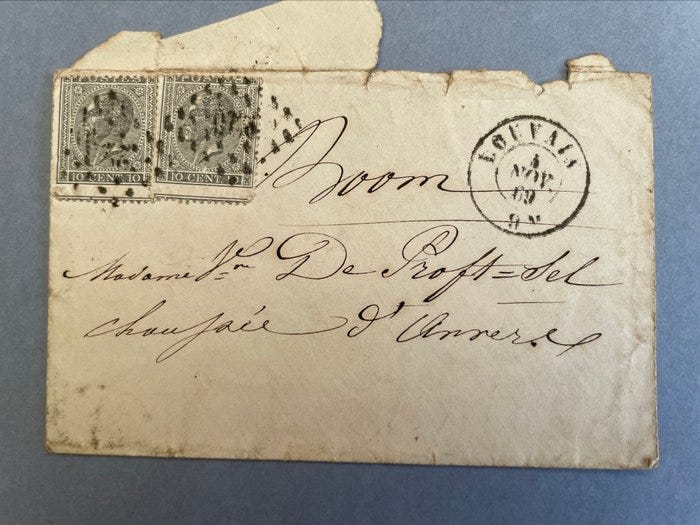 POSTES POSTES
10 CENT. 10 10 CENT.
LOUVAIN
4
NOV
69
Boom
Madame Vve De Proft=Sel
chaussée d'Anvers